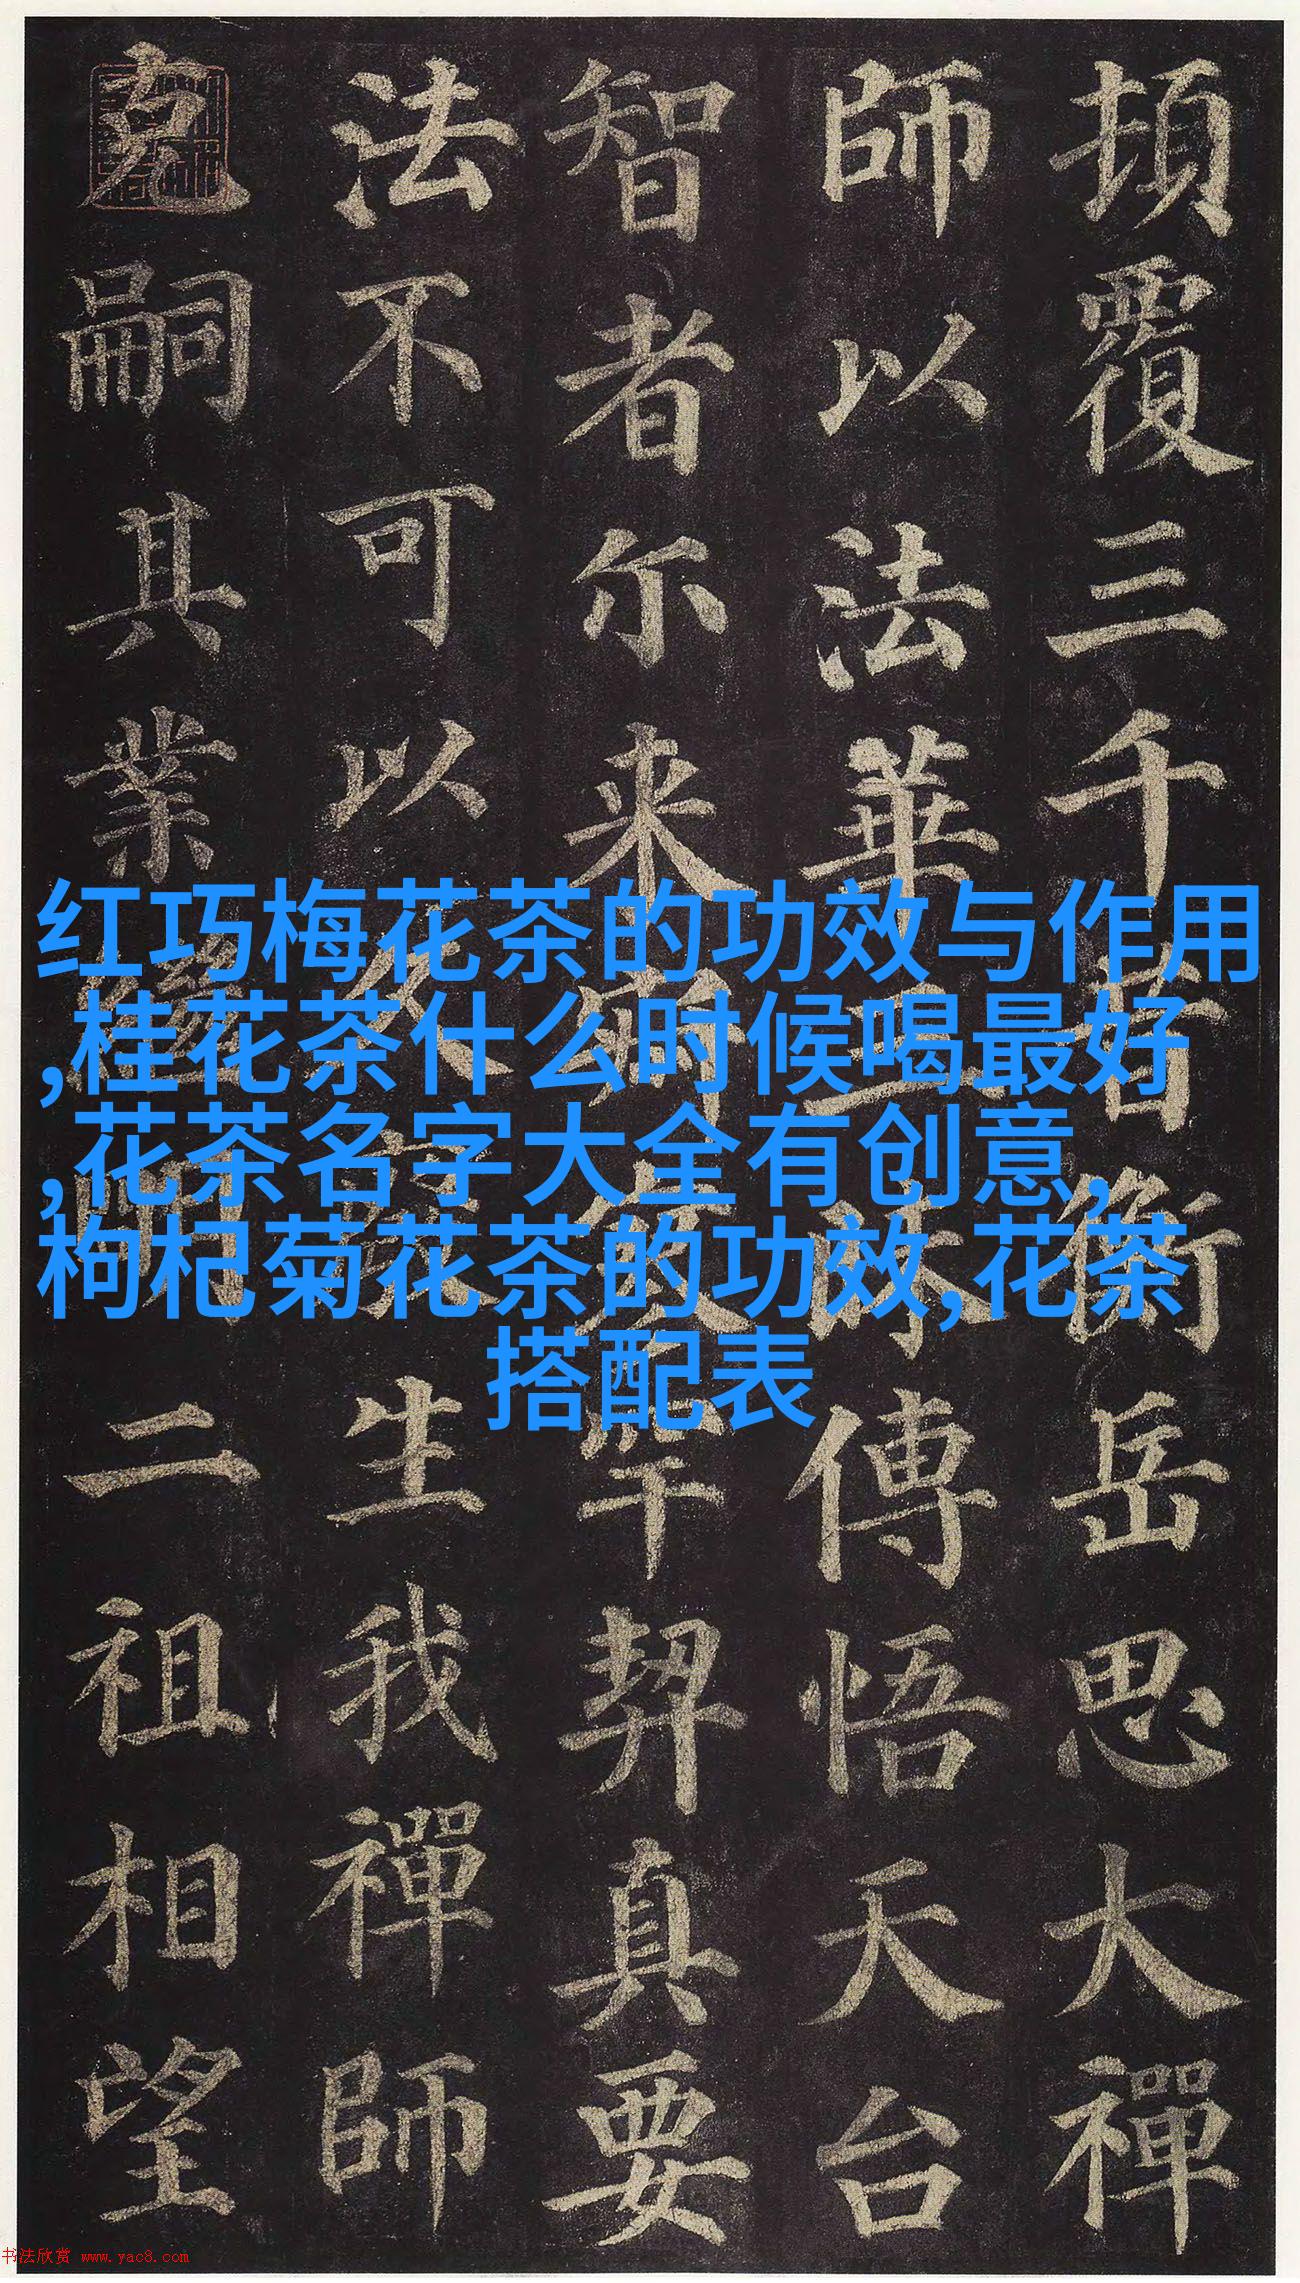 頂覆三千昔衡岳思大禪
師以法華三昧傳悟天台
智者尔来寂寥罕契真要
法不可以久廢生我禪師
克嗣其業継明二祖相望
红巧梅花茶的功效与作用
,桂花茶什么时候喝最好
,花茶名字大全有创意,
枸杞菊花茶的功效,花茶
搭配表
书法欣赏 www.yac8.com